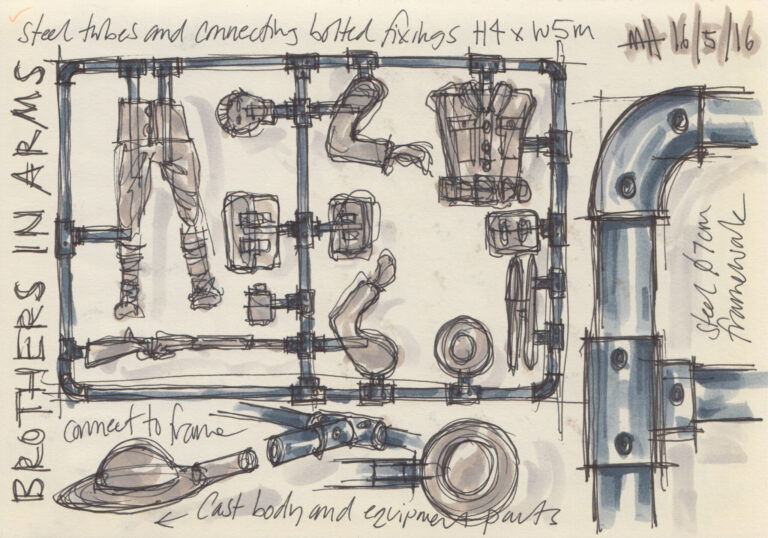 steel tubes and connecting bolted fixings H4 x W5m
MH 16/5/16
BROTHERS IN ARMS
steel ø7cm
framework
connect to frame
← Cast body and equipment parts